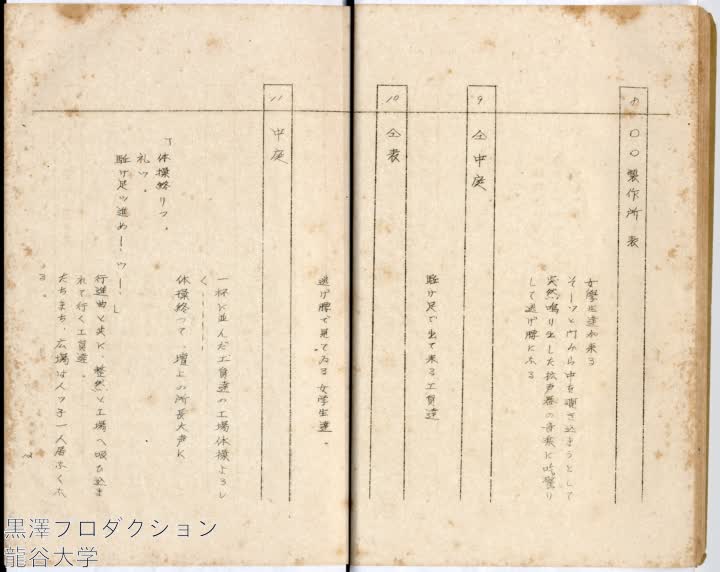 8 〇〇製作所 表
女學生達が来る
そーつと門から中を覗き込まうとして
突然鳴り出した拡声器の音楽に吃驚り
して逃げ腰になる
9 仝 中庭
駈け足で出て来る工員達
10 仝 表
逃げ腰で見てゐる女学生達。
11 中庭
一杯に並んだ工員達の工場体操よろし
く――
体操終つて、壇上の所長大声に
「体操終りッ。
礼ッ。
駈け足ッ進めー、ッー」
行進曲と共に、整然と工場へ吸ひ込ま
れて行く工員達。
たちまち、広場は人ッ子一人居なくな
る。
黒澤プロダクション
龍谷大学